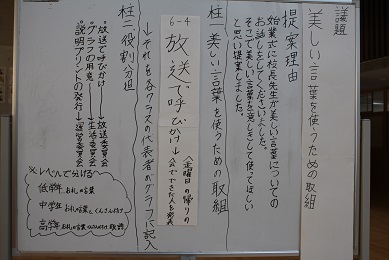 議題
美しい言葉を使うための取組
提案理由
始業式に校長先生が美しい言葉についての
お話をしてくださいました。
そこで美しい言葉を意しきして使ってほしい
と思い提案しました。
柱一 美しい言葉を使うための取組
6-4
放送で呼びかけ
金曜日の帰りの
会でできた人を発表
→それを各クラスの代表者がグラフに記入
柱二 役割分担
放送で呼びかけ→放送委員会
グラフの用意→生活委員会
説明プリントの発行→運営委員会
※レベルで分ける
低学年 お礼の言葉
中学年 お礼の言葉、くん、さん付け
高学年 お礼の言葉、くんさん付け、敬語